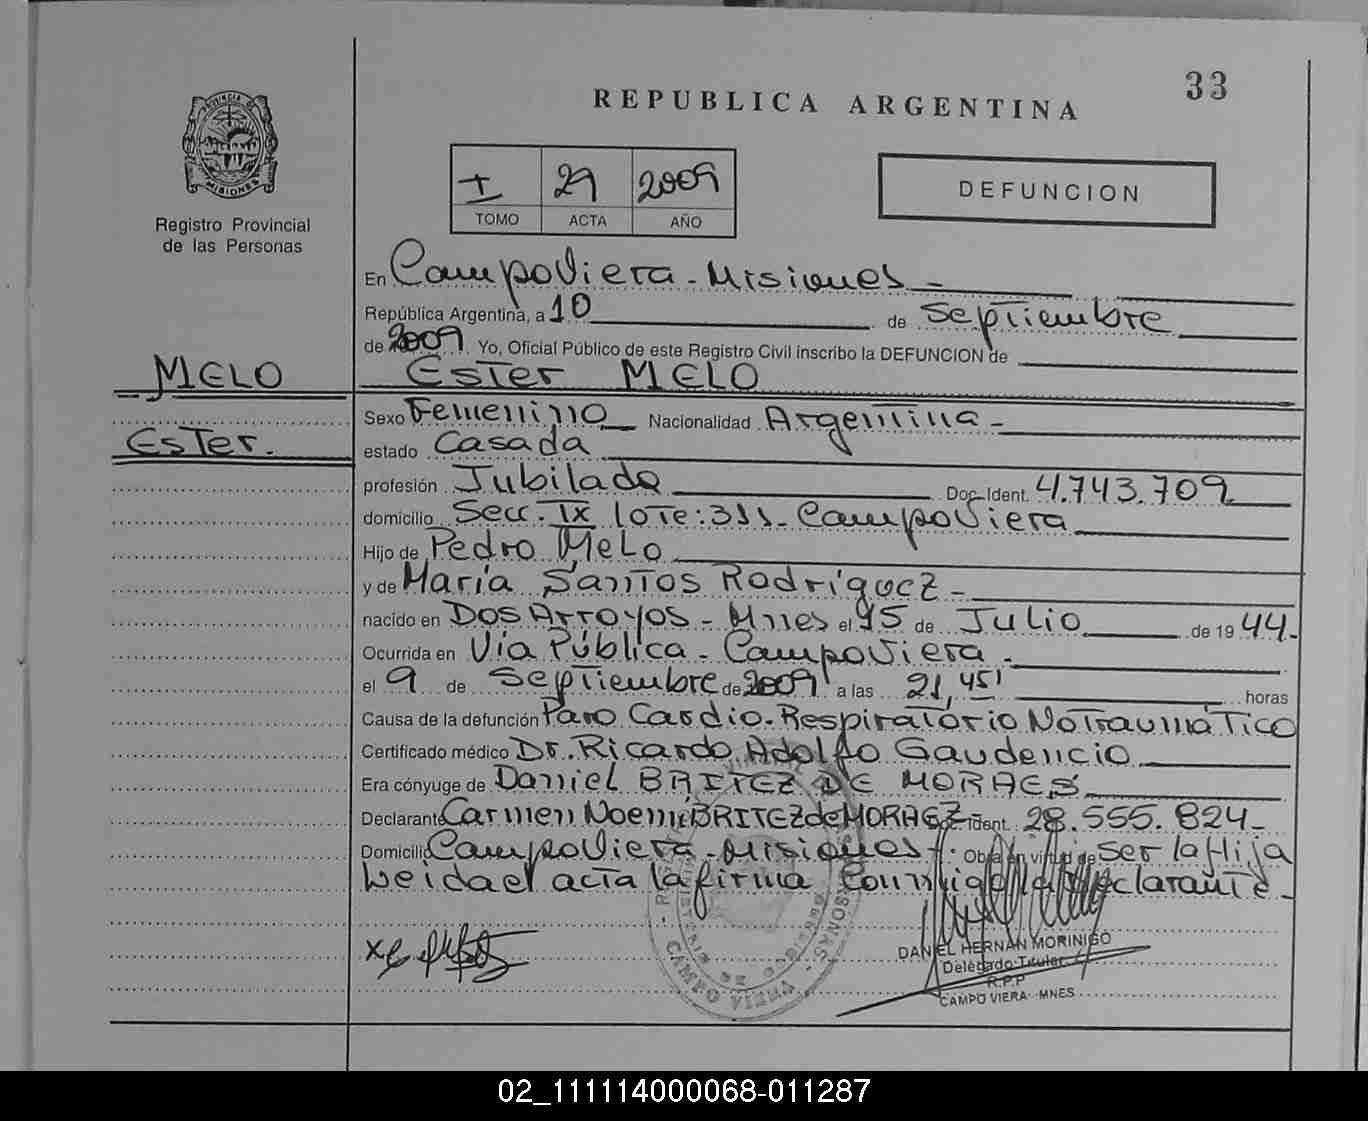 33
REPUBLICA ARGENTINA
PROVINCIA DE
MISIONES
Registro Provincial
de las Personas
I 29 2009
TOMO ACTA AÑO
DEFUNCION
En Campo Viera - Misiones -
República Argentina, a 10 de Septiembre
de 2009 Yo, Oficial Público de este Registro Civil inscribo la DEFUNCION de
MELO
Ester MELO
Sexo Femenino Nacionalidad Argentina -
Ester.
estado Casada
profesión Jubilada Doc. Ident. 4.743.709
domicilio Secc. IX lote: 311 - Campo Viera
Hijo de Pedro Melo
y de María Santos Rodríguez -
nacido en Dos Arroyos - Mnes el 15 de Julio de 19 44.
Ocurrida en Vía Pública - Campo Viera -
el 9 de Septiembre de 2009 a las 21,45' horas
Causa de la defunción Paro Cardio-Respiratorio No Traumático
Certificado médico Dr. Ricardo Adolfo Gaudencio
Era cónyuge de Daniel BRITEZ DE MORAES
Declarante Carmen Noemi BRITEZ de MORAEZ Ident. 28.555.824 -
Domicilio Campo Viera - Misiones - Obra en virtud de Ser la Hija
Leida el acta la firma Conmigo la declarante -
CAMPO VIERA
DANIEL HERNAN MORINIGO
Delegado Titular
R.P.P
CAMPO VIERA - MNES
02_111114000068-011287